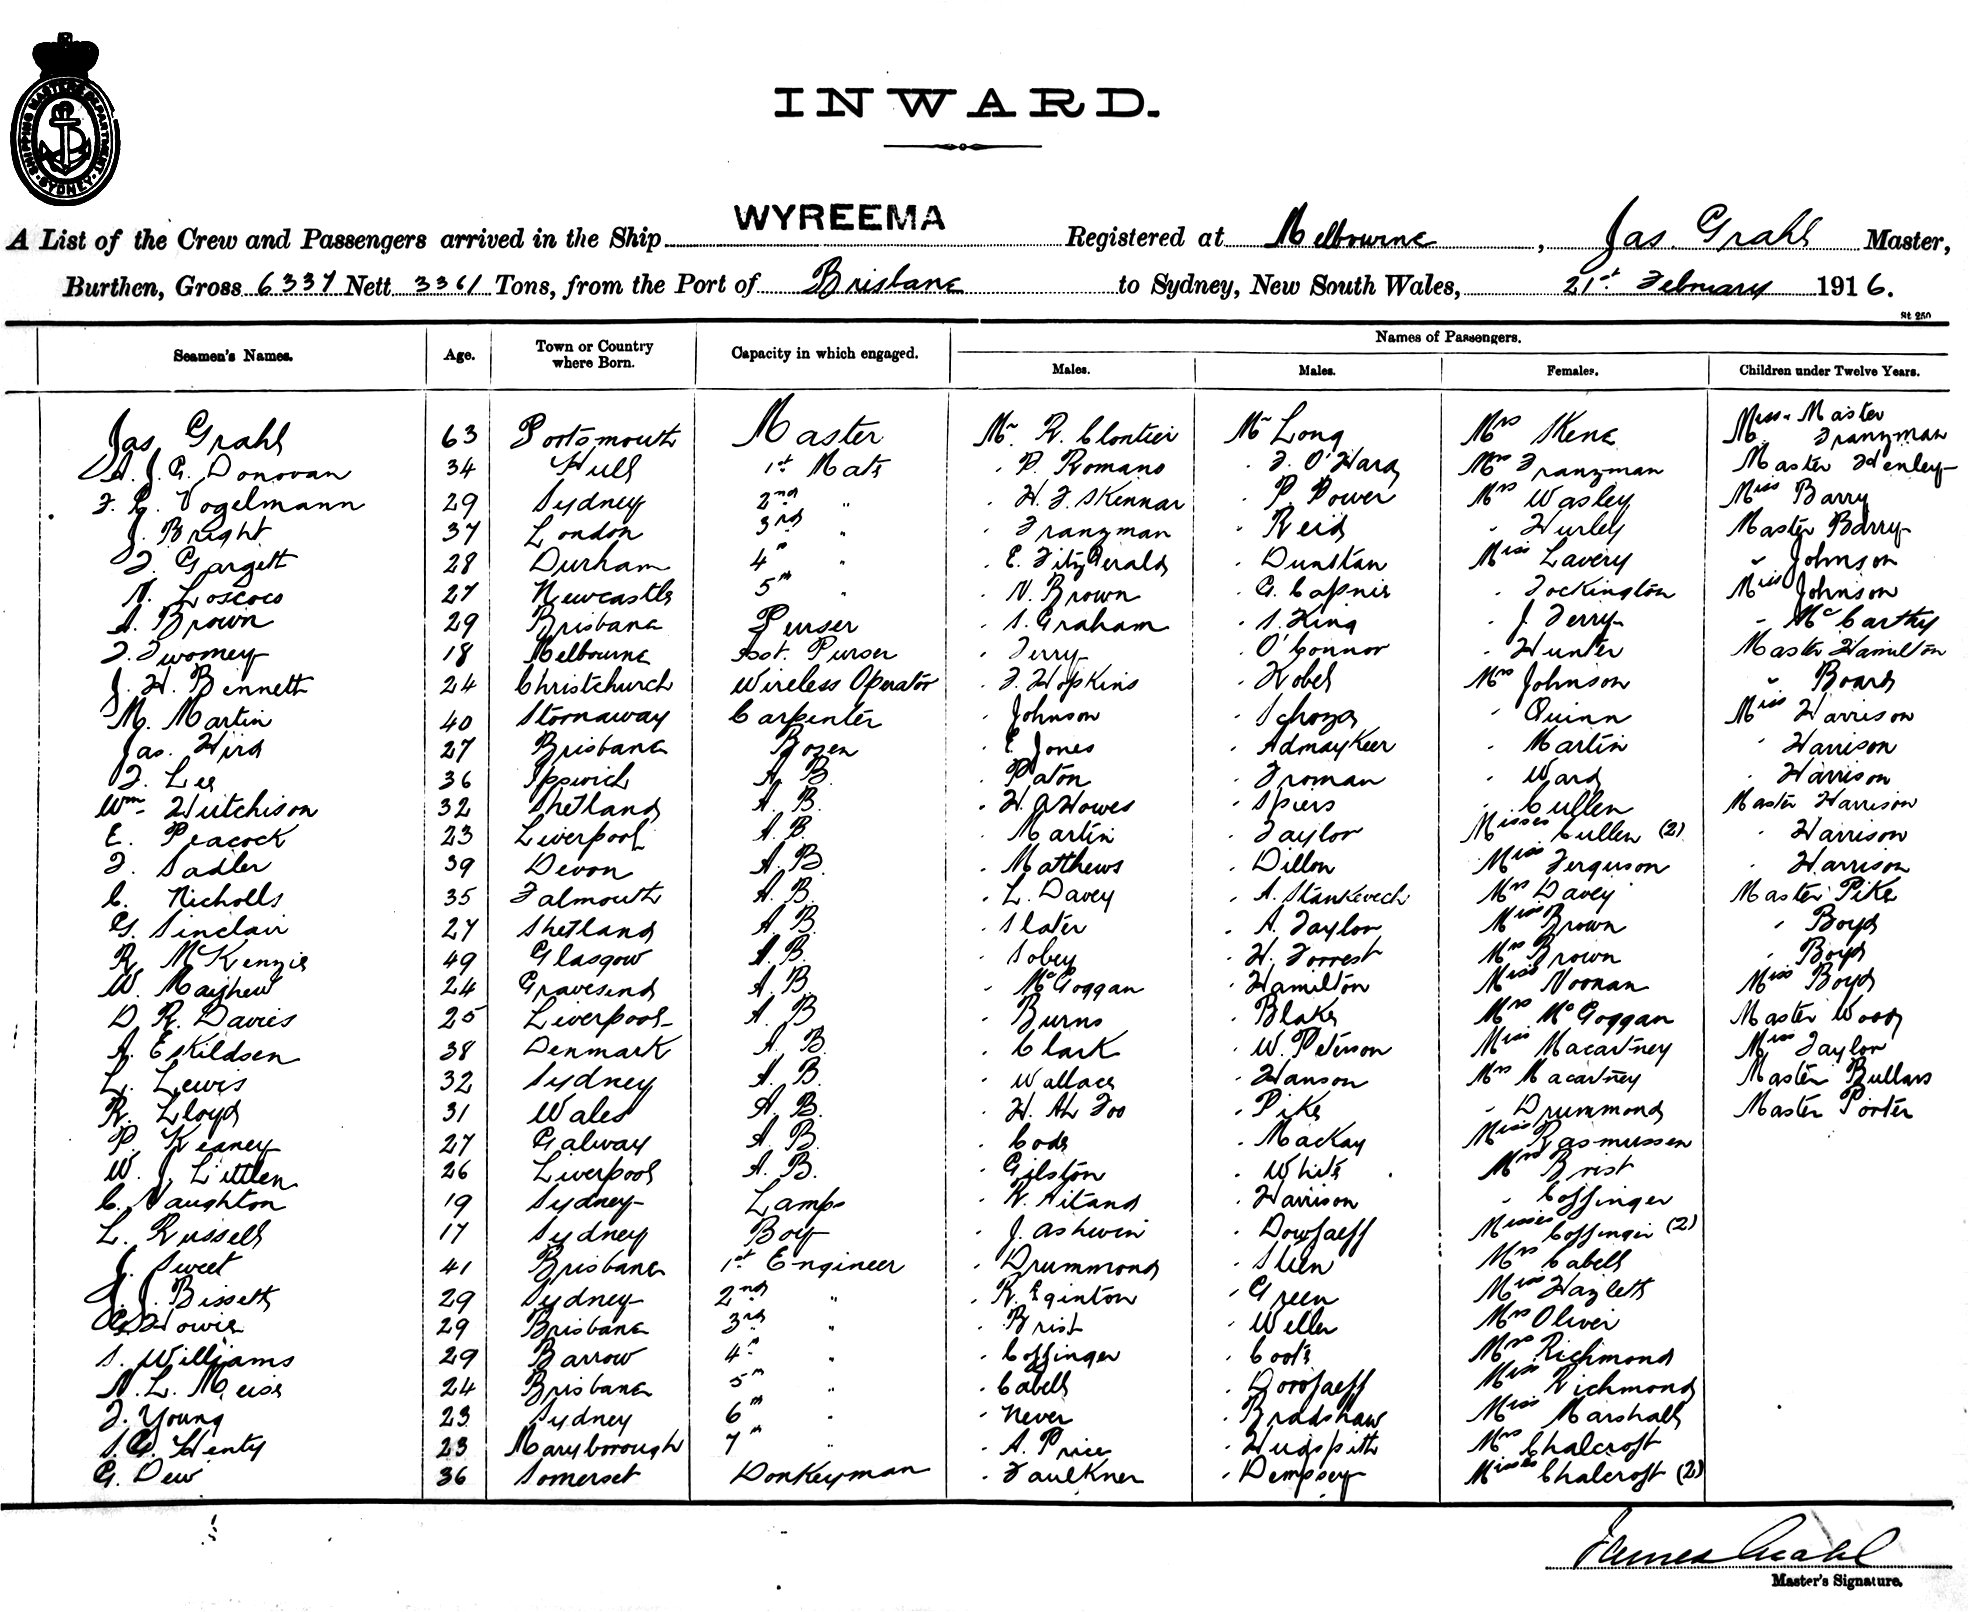 SHIPPING MASTERS DEPARTMENT SYDNEY
INWARD.
A List of the Crew and Passengers arrived in the Ship WYREEMA Registered at Melbourne, Jas. Grahl Master,
Burthen, Gross 6337 Nett 3361 Tons, from the Port of Brisbane to Sydney, New South Wales, 21st February 1916.
St 250
Seamen's Names. Age. Town or Country where Born. Capacity in which engaged. Names of Passengers.
Males. Males. Females. Children under Twelve Years.
Jas Grahl 63 Portsmouth Master Mr. R. Clontier Mr Long Mrs Skene Miss. Master Franzman
A. J. G. Donovan 34 Hull 1st Mate " P. Romano " F. O'Hara Mrs Franzman Master Henley
F. G. Vogelmann 29 Sydney 2nd " " H. F. Skennar " P. Power Mrs Wasley Miss Barry
J. Bright 37 London 3rd " " Franzman " Reid " Hurley Master Barry
F. Gargett 28 Durham 4th " " E. FitzGerald " Dunstan Miss Lavery " Johnson
N. Loscoco 27 Newcastle 5th " " N. Brown " G. Capnis " Tockington Miss Johnson
A. Brown 29 Brisbane Purser " S. Graham " S. King " J. Terry " McCarthy
F. Twomey 18 Melbourne Asst. Purser " Terry " O'Connor " Hunter Master Hamilton
J. H. Bennett 24 Christchurch Wireless Operator " F. Hopkins " Kobel Mrs Johnson " Board
M. Martin 40 Stornaway Carpenter " Johnson " " Quinn Miss Harrison
Jas. Hird 27 Brisbane Bozen " E. Jones " Admaykeer " Martin " Harrison
F. Lee 36 Ipswich A. B. " Paton " Froman " Ward " Harrison
Wm. Hutchison 32 Shetland A. B. " H. G. Howes " Spiers " Cullen Master Harrison
E. Peacock 23 Liverpool A. B. " Martin " Taylor Misses Cullen (2) " Harrison
F. Sadler 39 Devon A. B. " Matthews " Dillon Miss Ferguson " Harrison
C. Nicholls 35 Falmouth A. B. " L. Davey " A. Stankevech Mrs Davey Master Pike
G. Sinclair 27 Shetland A. B. " Slater " A. Taylor Miss Brown " Boyd
R. McKenzie 49 Glasgow A. B. " Sobey " H. Forrest Mrs Brown " Boyd
W. Mayhew 24 Gravesend A. B. " McGoggan " Hamilton Miss Noonan Miss Boyd
D. R. Davies 25 Liverpool A. B. " Burns " Blake Mrs McGoggan Master Wood
A. Eskildsen 38 Denmark A. B. " Clark " W. Peterson Miss Macartney Miss Taylor
L. Lewis 32 Sydney A. B. " Wallace " Hanson Mrs Macartney Master Bullard
R. Lloyd 31 Wales A. B. " H. Ah Foo " Pike " Drummond Master Porter
P. Keaney 27 Galway A. B. " Code " Mackay Miss Rasmussen
W. J. Littlen 26 Liverpool A. B. " Gilston " White Mrs Brist
C. Naughton 19 Sydney Lamps " R. Aitand " Harrison " Coffinger
L. Russell 17 Sydney Boy " J. Ashwin " Dowsaeff Misses Coffinger (2)
J. Sweet 41 Brisbane 1st Engineer " Drummond " Stein Mrs Cabell
J. J. Bissett 29 Sydney 2nd " " R. Eginton " Green Miss Hazlett
G. Howie 29 Brisbane 3rd " " Brist " Weller Mrs Oliver
S. Williams 29 Barrow 4th " " Coffinger " Coote Mrs Richmond
N. L. Meise 24 Brisbane 5th " " Cabell " Dorofaeff Miss Richmond
F. Young 23 Sydney 6th " " Never " Bradshaw Miss Marshall
S. G. Henty 23 Maryborough 7th " " A. Price " Hudspith Mrs Chalcroft
G. Dew 36 Somerset Donkeyman " Faulkner " Dempsey Misses Chalcroft (2)
James Grahl
Master's Signature.